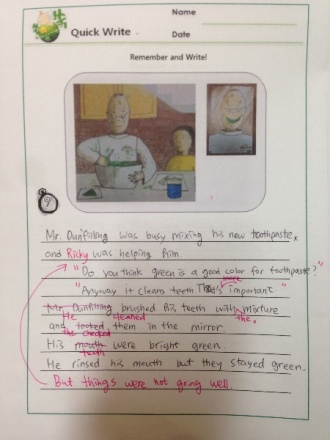 Name
Quick Write
Date
Remember and Write!
Mr. Dunfilling was busy mixing his new toothpaste,
and Ricky was helping him.
"Do you think green is a good color for toothpaste?"
"Anyway it cleans teeth That's more important"
Mr. Dunfilling brushed his teeth with mixture
He cleaned the
and looked them in the mirror.
he checked
His mouth were bright green.
teeth
He rinsed his mouth but they stayed green.
But things were not going well.